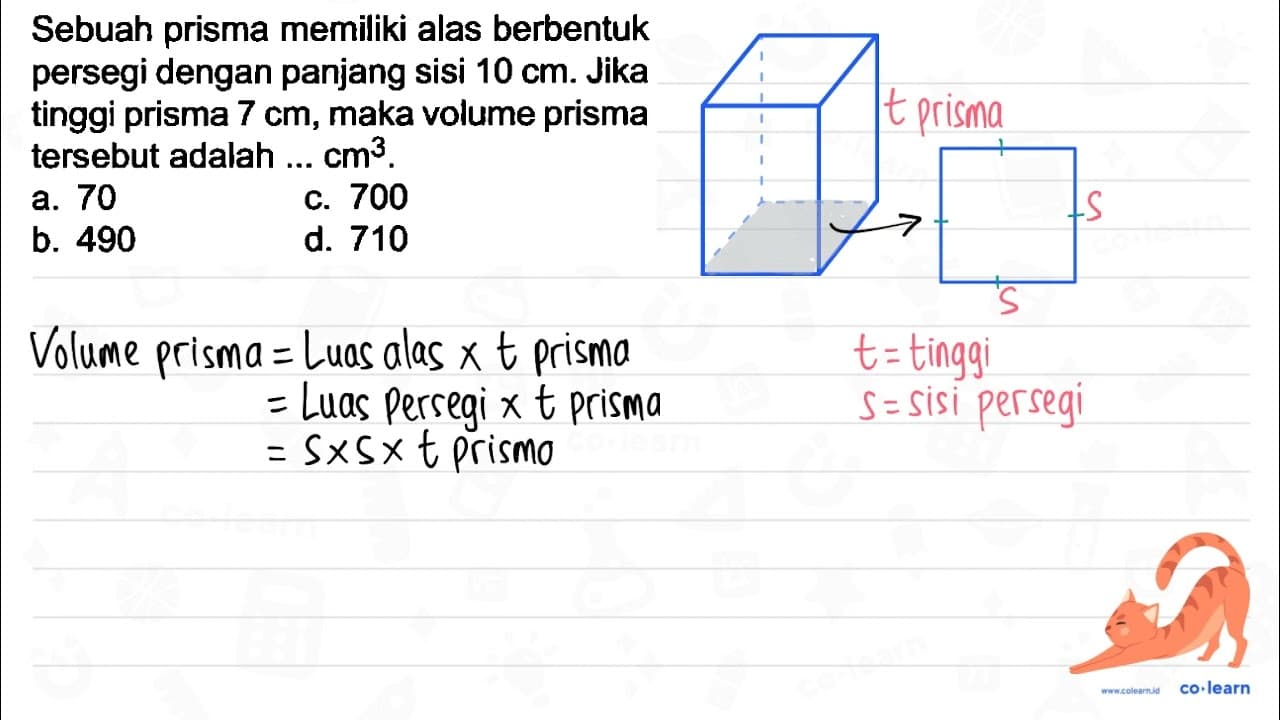 Sebuah prisma memiliki alas berbentuk
persegi dengan panjang sisi 10 cm. Jika
tinggi prisma 7 cm, maka volume prisma
tersebut adalah ... cm³.
a. 70 c. 700
b. 490 d. 710
t prisma
s
s
Volume prisma = Luas alas x t prisma
= Luas persegi x t prisma
= s x s x t prisma
t = tinggi
s = sisi persegi
www.colearn.id co·learn